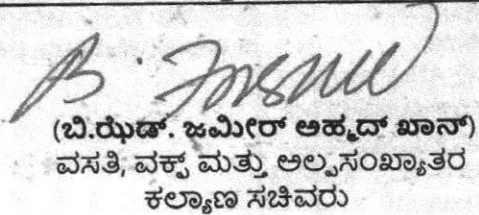 (ಬಿ.ಝೆಡ್. ಜಮೀರ್ ಅಹ್ಮದ್ ಖಾನ್)
ವಸತಿ, ವಕ್ಫ್ ಮತ್ತು ಅಲ್ಪಸಂಖ್ಯಾತರ
ಕಲ್ಯಾಣ ಸಚಿವರು